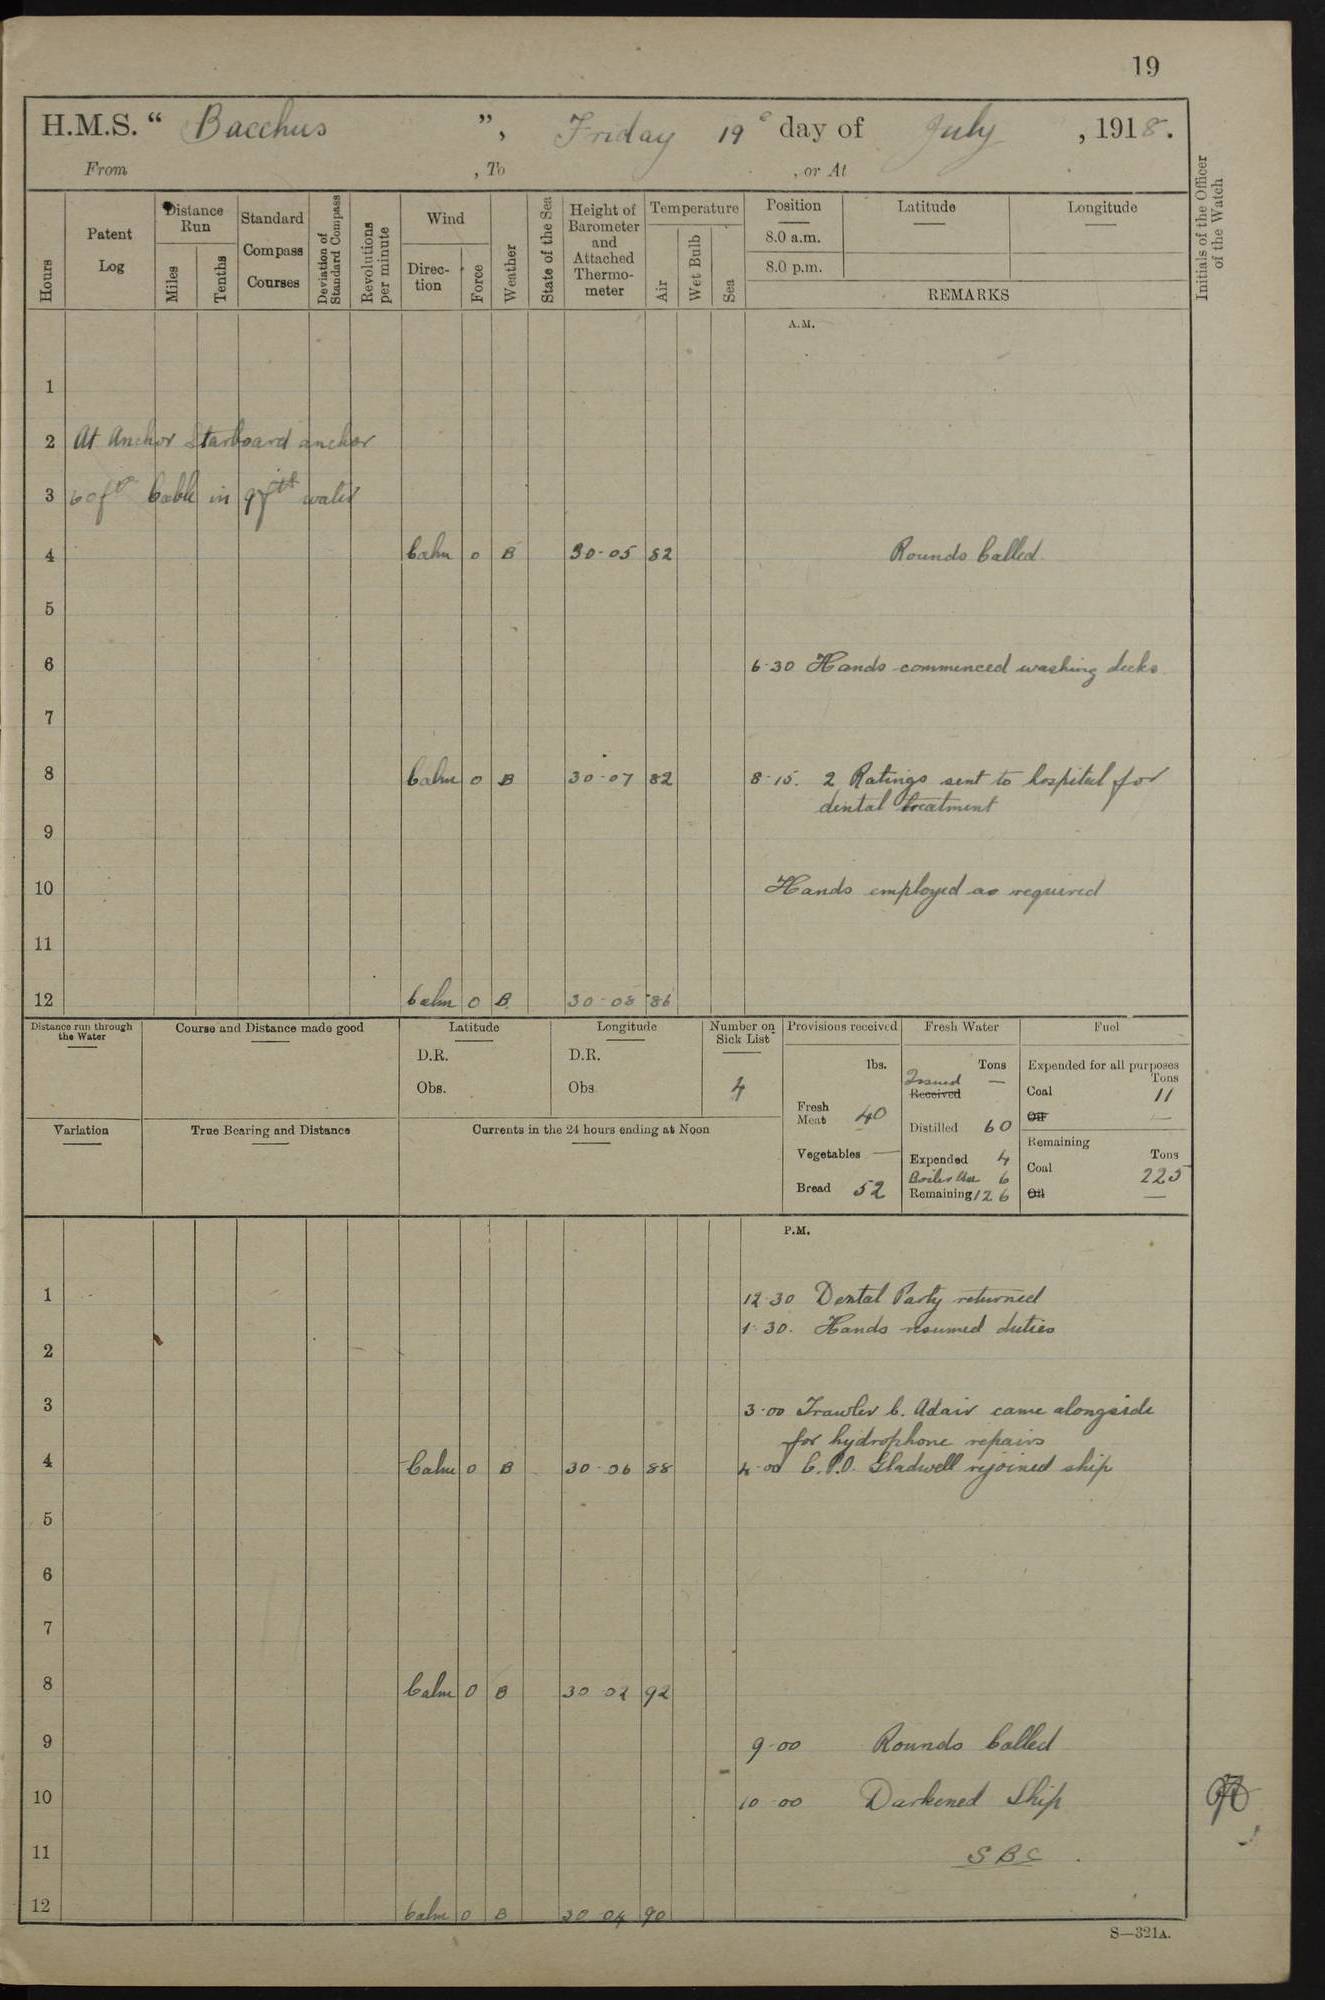 19
H.M.S. “ Bacchus ”, Friday 19e day of July , 1918.
From , To , or At
Hours
Patent Log
Distance Run
Miles
Tenths
Standard Compass Courses
Deviation of Standard Compass
Revolutions per minute
Wind
Direc-tion
Force
Weather
State of the Sea
Height of Barometer and Attached Thermo-meter
Temperature
Air
Wet Bulb
Sea
Position Latitude Longitude
8.0 a.m.
8.0 p.m.
REMARKS
Initials of the Officer of the Watch
A.M.
1
2 At Anchor Starboard anchor
3 60 fm Cable in 9 fth water
4 Calm 0 B 30.05 82 Rounds Called.
5
6 6.30 Hands commenced washing decks
7
8 Calm 0 B 30.07 82 8.15. 2 Ratings sent to hospital for
dental treatment
9
10 Hands employed as required
11
12 Calm 0 B 30.08 86
Distance run through the Water
Course and Distance made good
Latitude
D.R.
Obs.
Longitude
D.R.
Obs
Number on Sick List
4
Provisions received
lbs.
Fresh Meat 40
Vegetables —
Bread 52
Fresh Water
Tons
Issued —
Received
Distilled 60
Expended 4
Boiler Use 6
Remaining 126
Fuel
Expended for all purposes
Tons
Coal 11
Oil —
Remaining
Tons
Coal 225
Oil —
Variation
True Bearing and Distance
Currents in the 24 hours ending at Noon
P.M.
1 12.30 Dental Party returned
1.30. Hands resumed duties
2
3 3.00 Trawler C. Adair came alongside
for hydrophone repairs
4 Calm 0 B 30.06 88 4.00 C.P.O. Gladwell rejoined ship
5
6
7
8 Calm 0 B 30 02 92
9 9.00 Rounds Called
10 10.00 Darkened Ship
11 SBC
12 Calm 0 B 30 04 90
S—321A.